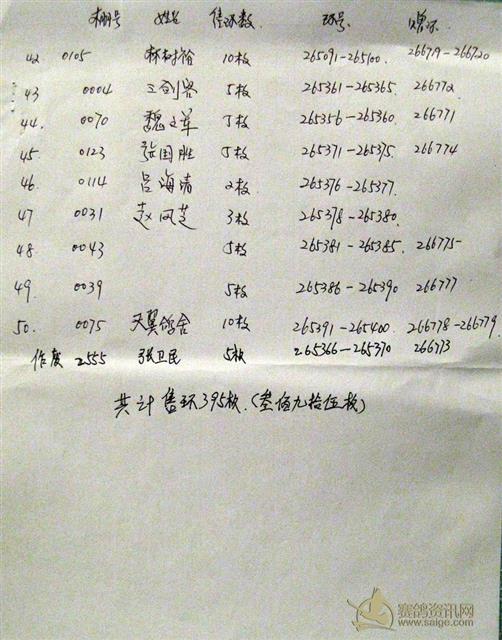 棚号 姓名 售环数 环号 赠环
42 0105 林树裕 10枚 265091-265100 266719-266720
43 0004 三剑客 5枚 265361-265365. 266772.
44. 0070 魏文革 5枚 265356-265360. 266771
45. 0123 张国胜 5枚 265371-265375. 266774
46. 0114 吕海清 2枚. 265376-265377.
47 0031 赵凤芝 3枚 265378-265380.
48 0043 5枚 265381-265385. 266775
49. 0039 5枚 265386-265390 266777
50. 0075 天翼鸽舍 10枚 265391-265400. 266778-266779
作废 2555 张卫民 5枚 265366-265370 266773
共计售环395枚.(叁佰九拾伍枚)
赛鸽资讯网
www.saige.com